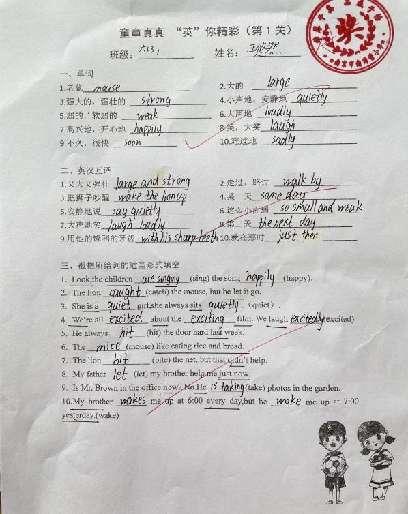 童童真真 “英”你精彩（第1关）
班级： 姓名：
一、单词
1.老鼠 mouse 2.大的 large
3.强大的，强壮的 strong 4.小声地，安静地 quietly
5.弱的，软弱的 weak 6.大声地 loudly
7.高兴地，开心地 happily 8.笑，大笑 laugh
9.不久，很快 soon 10.难过地 sadly
二、英汉互译
1.又大又强壮 large and strong 2.走过，路过 walk by
4.某一天 some day
5.安静地说 say quietly 6.这么小而弱 so small and weak
7.大声地笑 laugh loudly 8.第二天 the next day
9.用他的锋利的牙齿 with his sharp teeth 10.就在那时 just then
三、根据所给词的适当形式填空
1. Look the children are singing (sing) the song happily (happy).
2. The lion caught (catch) the mouse, but he let it go.
3. She is a quiet girl,she always sits quietly (quiet) .
4. We're all excited about the exciting film. We laugh excitedly(excited)
5. He always hit (hit) the door hard last week.
6. The mice (mouse) like eating rice and bread.
7. The lion bit (bite) the net, but that didn't help.
8. My father let (let) my brother help me just now.
9. Is Mr. Brown in the office now? No.He is taking(take) photos in the garden.
10.My brother makes me up at 6:00 every day,but he make me up at 7:00
yesterday.(wake)